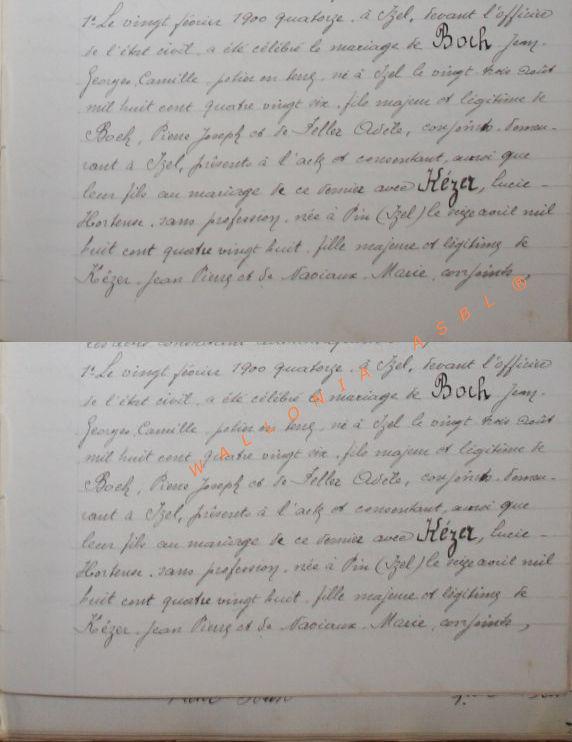 1º Le vingt février 1900 quatorze, à Izel, devant l'officier
de l'état civil, a été célébré le mariage de Boch Jean-
Georges, Camille, potier en terre, né à Izel le vingt trois août
mil huit cent quatre vingt six, fils majeur et légitime de
Boch, Pierre Joseph et de Feller Adèle, conjoints, demeu-
rant à Izel, présents à l'acte et consentant, ainsi que
leur fils au mariage de ce dernier avec Kézer, Lucie-
Hortense, sans profession, née à Pin (Izel) le seize avril mil
huit cent quatre vingt huit, fille majeure et légitime de
Kézer, Jean Pierre et de Naviaux, Marie, conjoints,
WALLONIA ASBL ®
1º Le vingt février 1900 quatorze, à Izel, devant l'officier
de l'état civil, a été célébré le mariage de Boch Jean-
Georges, Camille, potier en terre, né à Izel le vingt trois août
mil huit cent quatre vingt six, fils majeur et légitime de
Boch, Pierre Joseph et de Feller Adèle, conjoints, demeu-
rant à Izel, présents à l'acte et consentant, ainsi que
leur fils au mariage de ce dernier avec Kézer, Lucie-
Hortense, sans profession, née à Pin (Izel) le seize avril mil
huit cent quatre vingt huit, fille majeure et légitime de
Kézer, Jean Pierre et de Naviaux, Marie, conjoints,